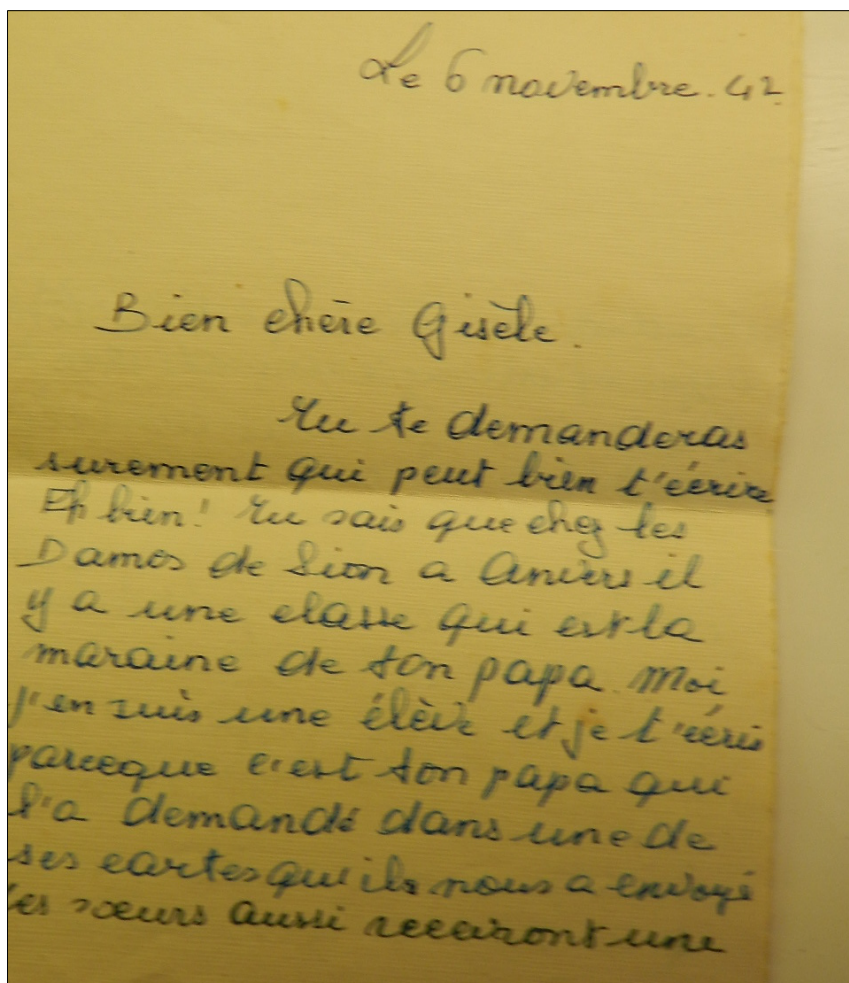 Le 6 novembre. 42.
Bien chère Gisèle.
Tu te demanderas
surement qui peut bien t'écrire
Eh bien! Tu sais que chez les
Dames de Sion a Anvers il
y a une classe qui est la
maraine de ton papa. Moi
j'en suis une élève et je t'écris
parceque c'est ton papa qui
l'a demandé dans une de
ses cartes qu'ils nous a envoyé
tes sœurs aussi recevront une